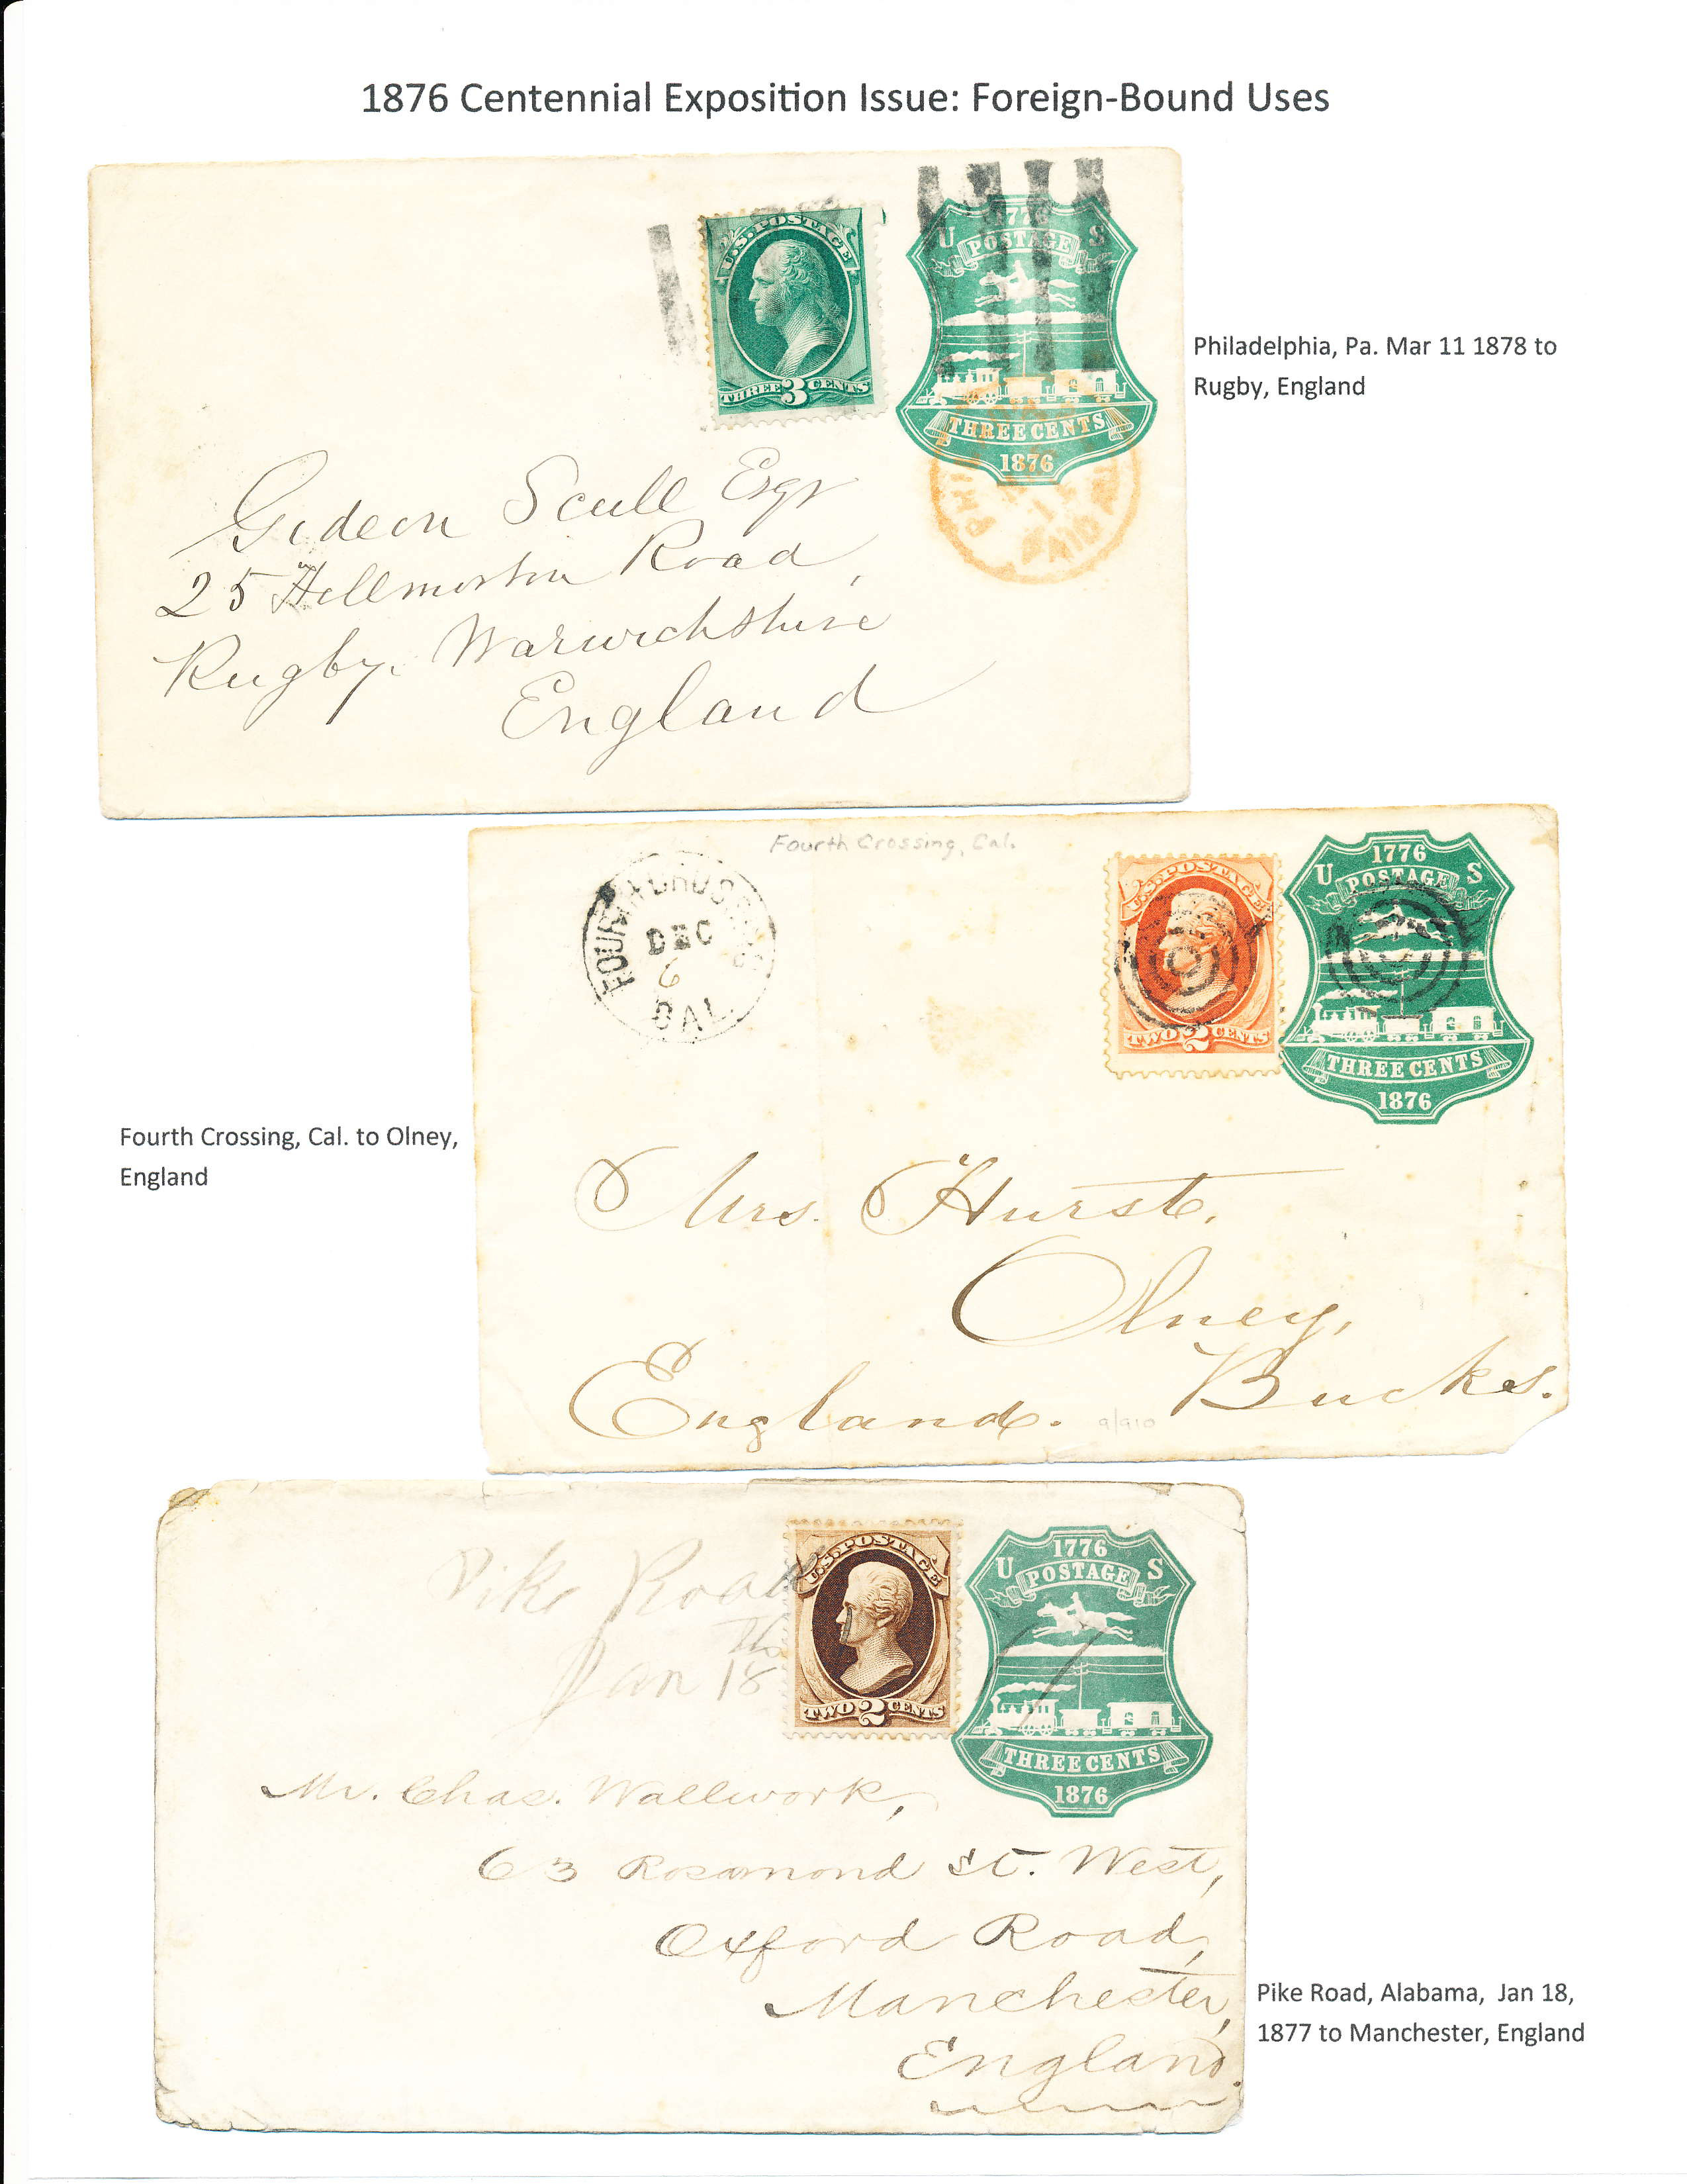 1876 Centennial Exposition Issue: Foreign-Bound Uses
U.S. POSTAGE
THREE 3 CENTS
U POSTAGE S
THREE CENTS
1876
Philadelphia, Pa. Mar 11 1878 to
Rugby, England
Gideon Scull Esqr
25 Hillmorton Road,
Rugby. Warwickshire
England
Fourth Crossing, Cal.
DEC
6
CAL.
U.S. POSTAGE
TWO 2 CENTS
1776
U POSTAGE S
THREE CENTS
1876
Fourth Crossing, Cal. to Olney,
England
Mrs. Hurst.
Olney,
Bucks.
England.
9/910
Pike Road
Jan 18
U.S. POSTAGE
TWO 2 CENTS
1776
U POSTAGE S
THREE CENTS
1876
Mr. Chas. Wallwork,
63 Rosamond St. West,
Oxford Road,
Manchester,
England.
Pike Road, Alabama, Jan 18,
1877 to Manchester, England